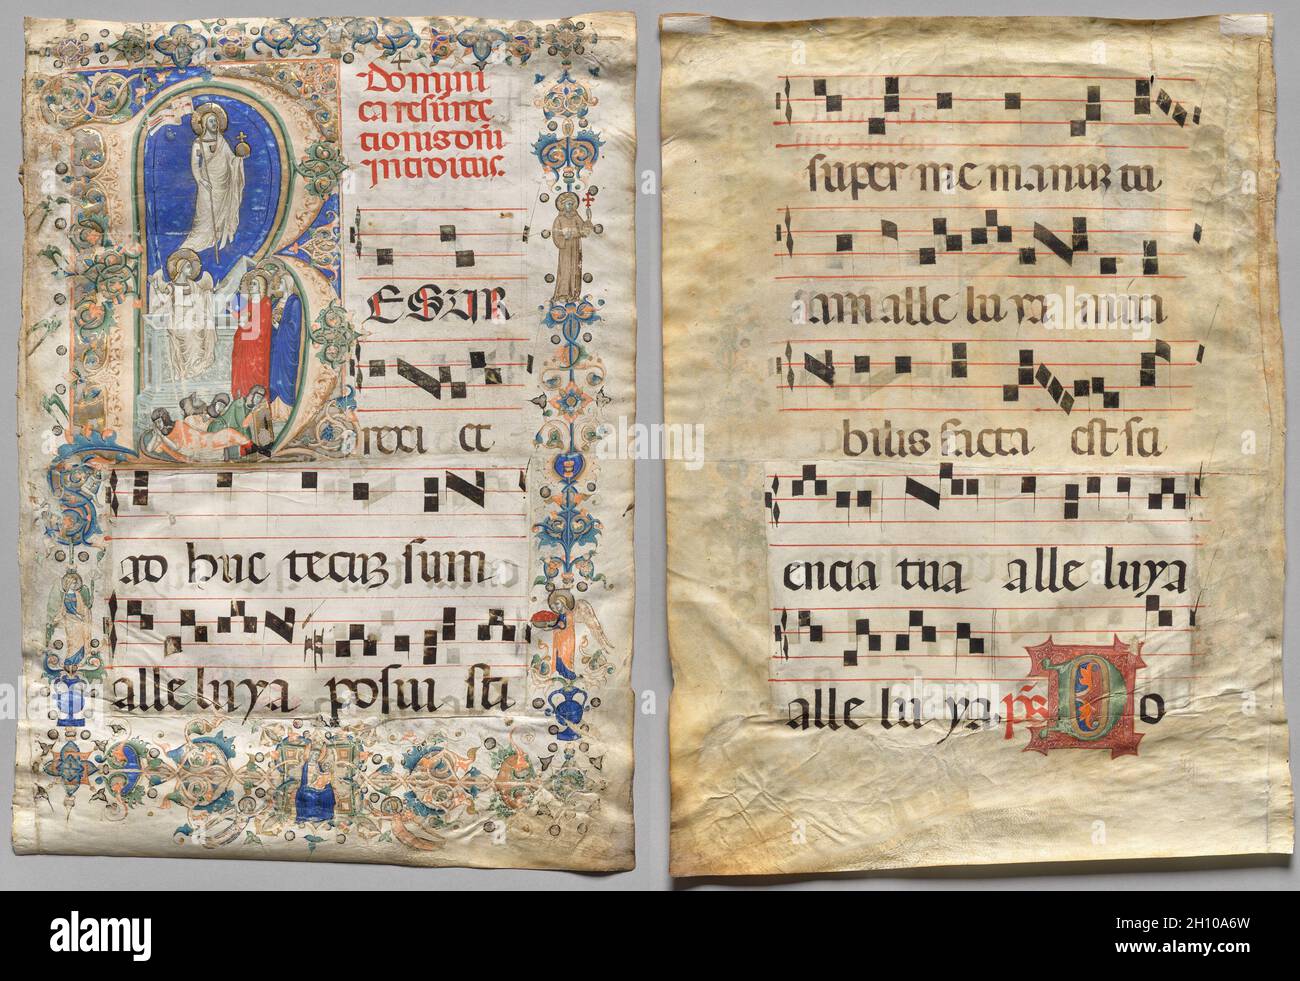 Domini
ca resurrec
tionis dñi
introitus.
R ESUR
rexi et
ad huc tecuz sum
alle luya posui sti
super me manuz tu
am alle lu ya mira
bilis facta est sci
encia tua alle luya
alle lu ya. ps D o
alamy
Image ID: 2H10A6W
www.alamy.com